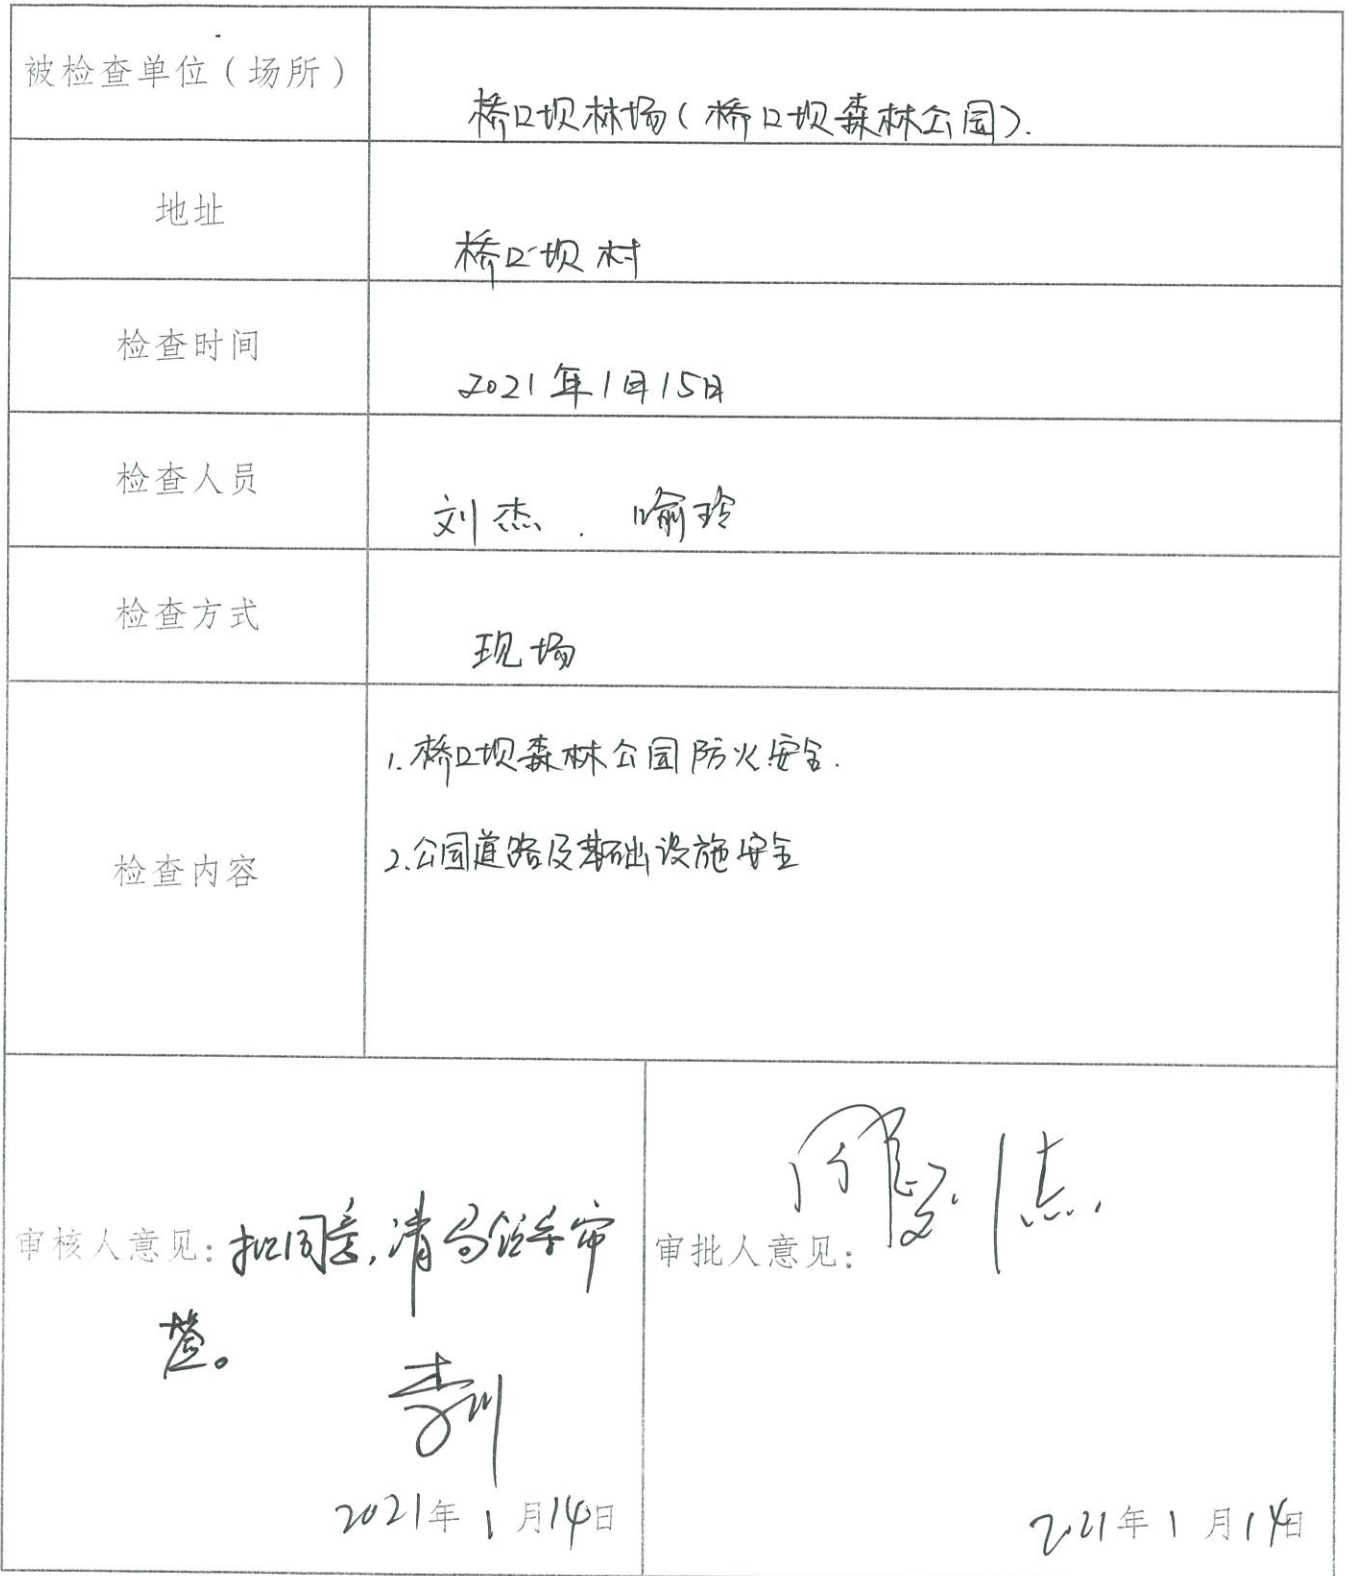 被检查单位（场所）
桥口坝林场(桥口坝森林公园).
地址
桥口坝村
检查时间
2021年1月15日
检查人员
刘杰. 喻玲
检查方式
现场
检查内容
1.桥口坝森林公园防火安全.
2.公园道路及基础设施安全
审核人意见:拟同意,请马经季审
签。
李川
2021年1月14日
审批人意见:
2021年1月14日